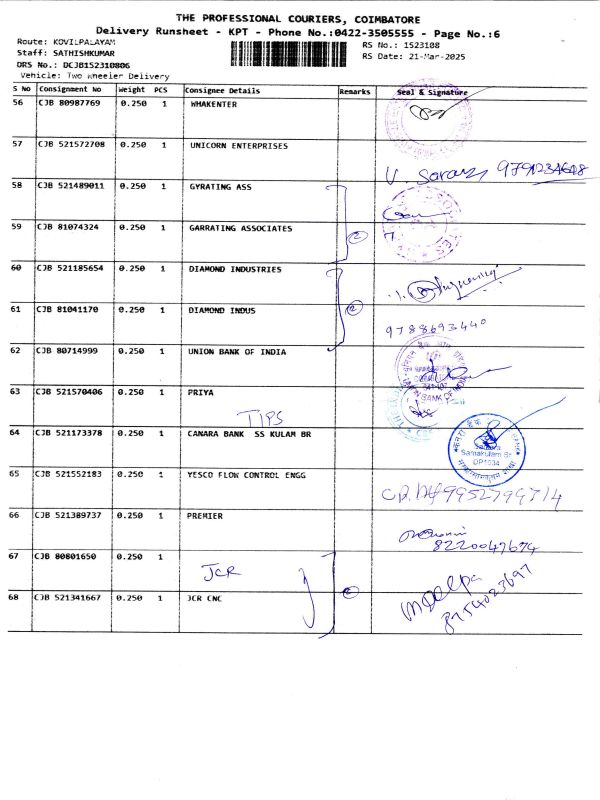 THE PROFESSIONAL COURIERS, COIMBATORE
Delivery Runsheet - KPT - Phone No.:0422-3505555 - Page No.:6
Route: KOVILPALAYAM
RS No.: 1523108
Staff: SATHISHKUMAR
RS Date: 21-Mar-2025
DRS No.: DCJB152310806
Vehicle: Two Wheeler Delivery
S No Consignment No Weight PCS Consignee Details Remarks Seal & Signature
56 CJB 80987769 0.250 1 WHAKENTER
57 CJB 521572708 0.250 1 UNICORN ENTERPRISES
58 CJB 521489011 0.250 1 GYRATING ASS
59 CJB 81074324 0.250 1 GARRATING ASSOCIATES
2
60 CJB 521185654 0.250 1 DIAMOND INDUSTRIES
61 CJB 81041170 0.250 1 DIAMOND INDUS
2
9788693440
62 CJB 80714999 0.250 1 UNION BANK OF INDIA
UNION BANK OF INDIA
63 CJB 521570406 0.250 1 PRIYA
TIPS
64 CJB 521173378 0.250 1 CANARA BANK SS KULAM BR
Samakulam Br
65 CJB 521552183 0.250 1 YESCO FLOW CONTROL ENGG
9952799714
66 CJB 521389737 0.250 1 PREMIER
8220047674
67 CJB 80801650 0.250 1
JCR
68 CJB 521341667 0.250 1 JCR CNC
2
8754023697